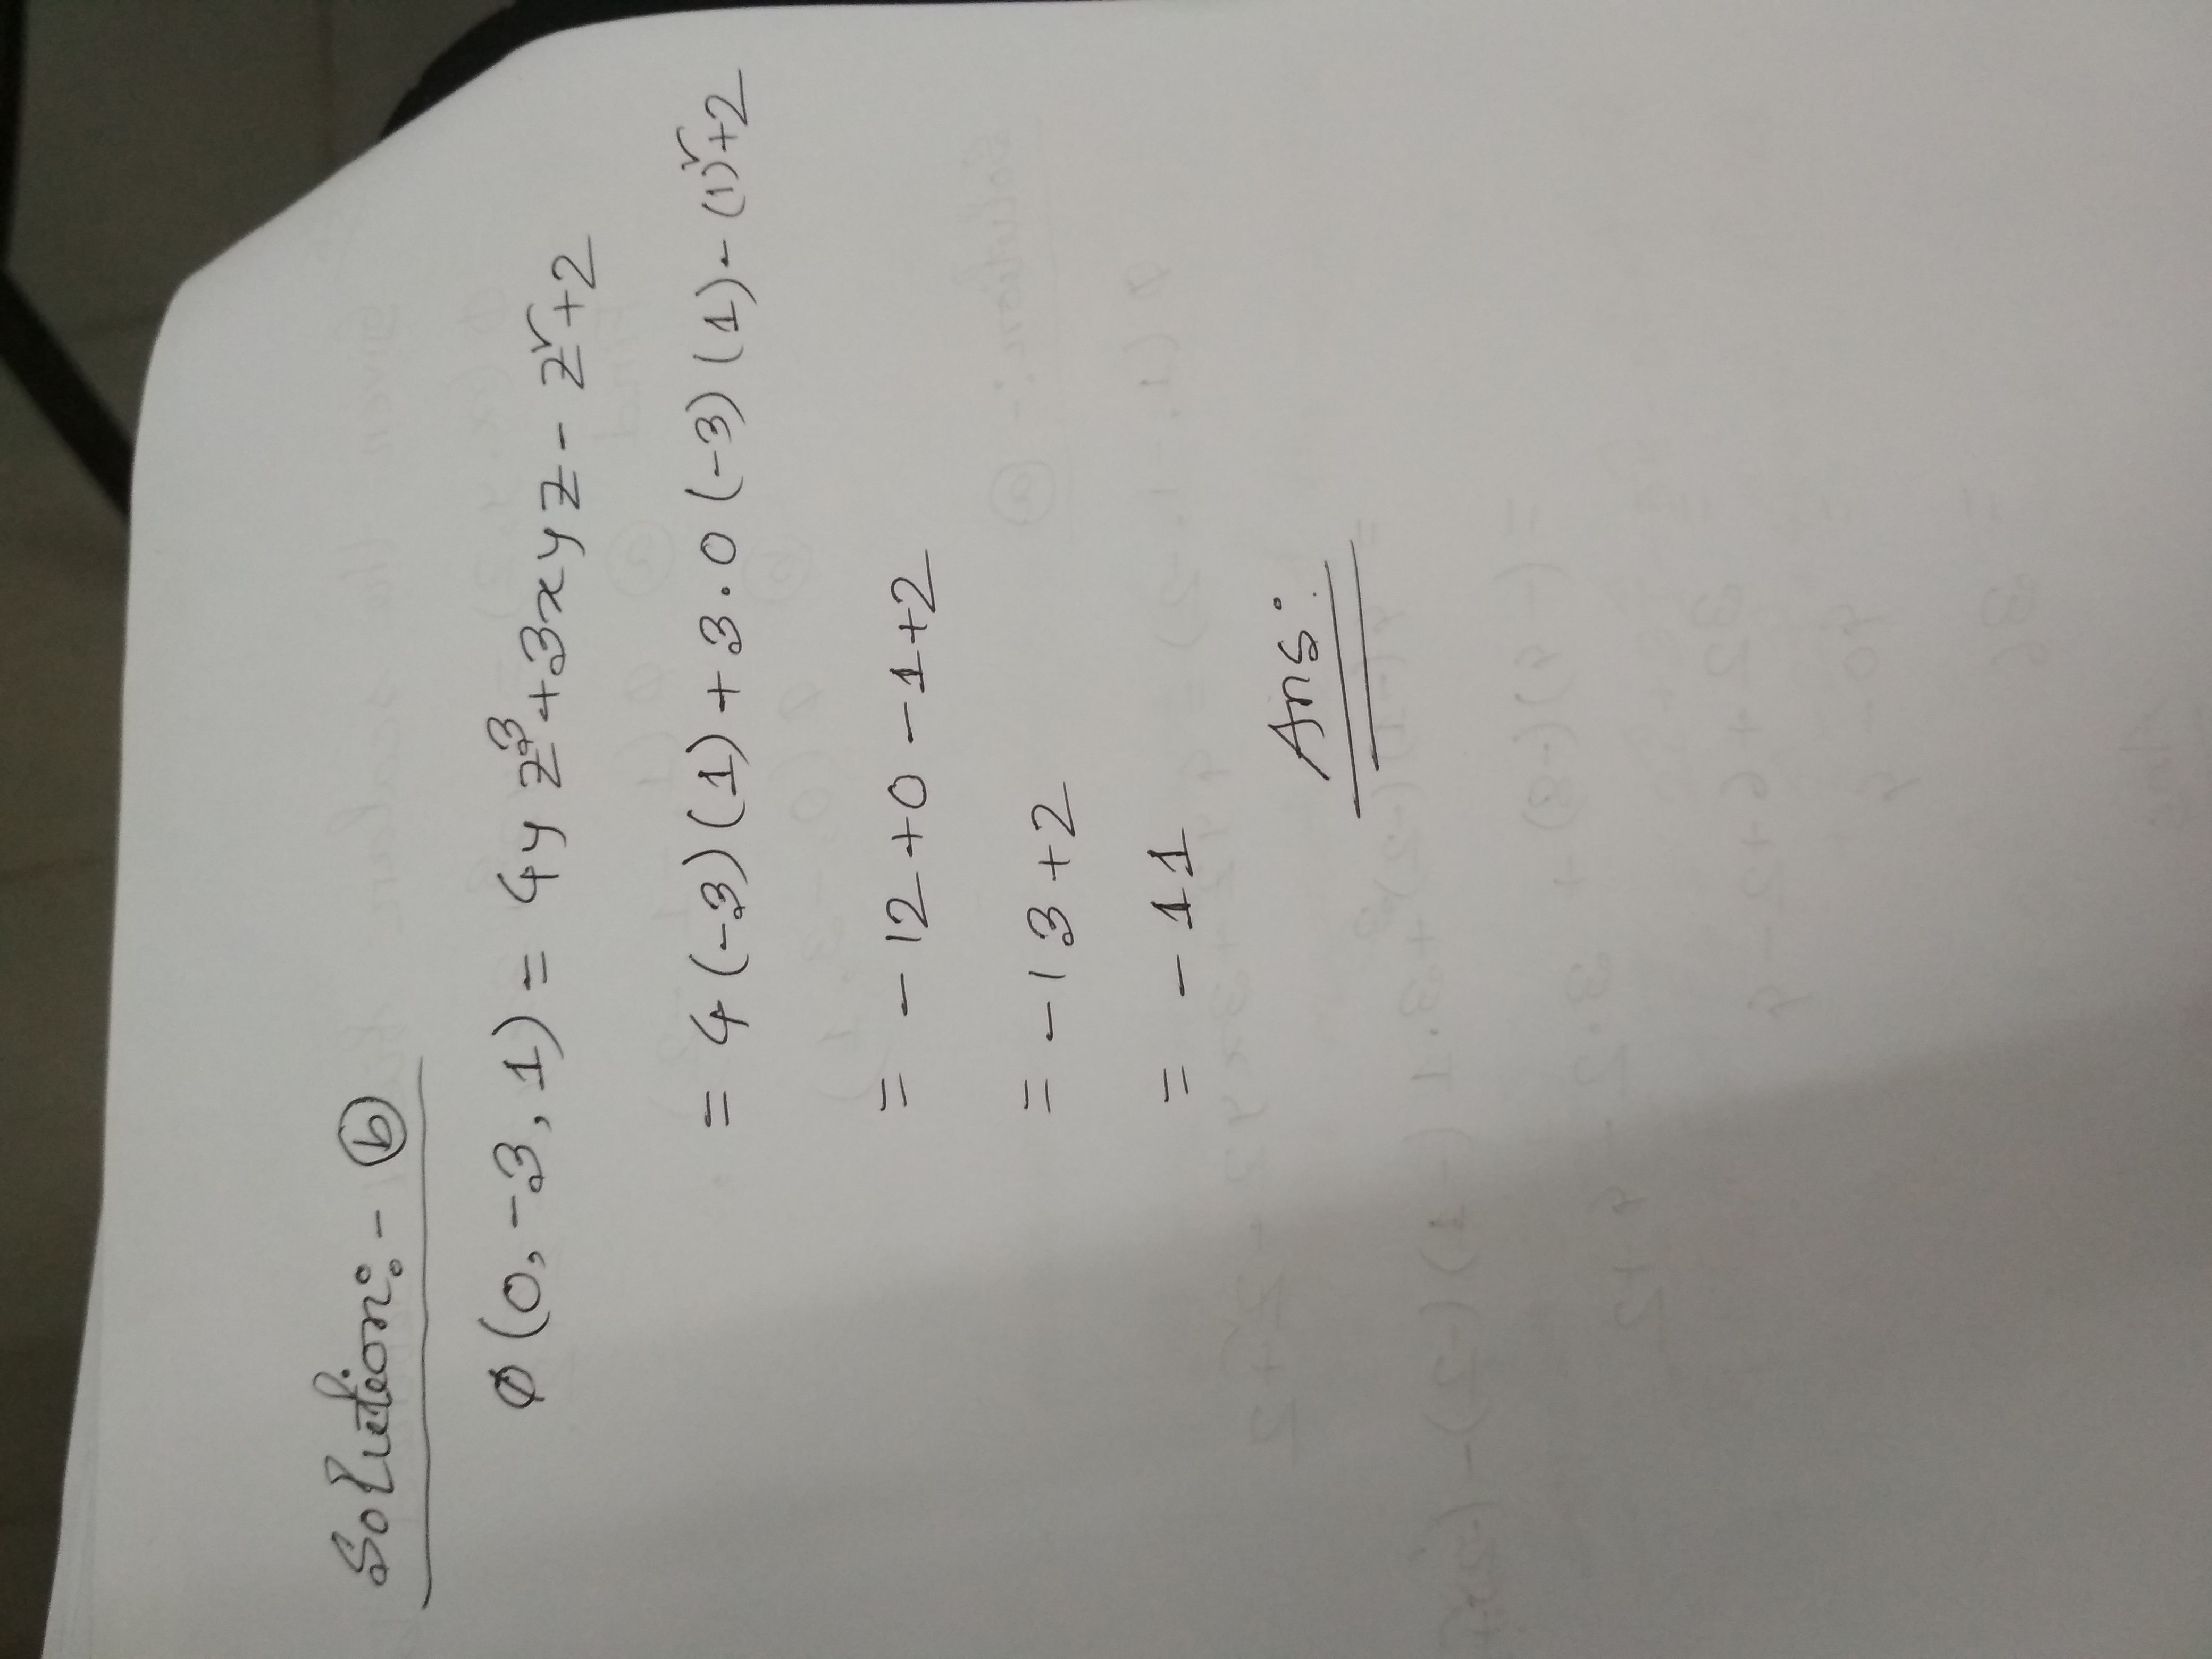 Solution:- (b)
φ(0,-3,1) = 4yz³+3xyz-z²+2
= 4(-3)(1)+3.0(-3)(1)-(1)²+2
= -12+0-1+2
= -13+2
= -11
Ans: